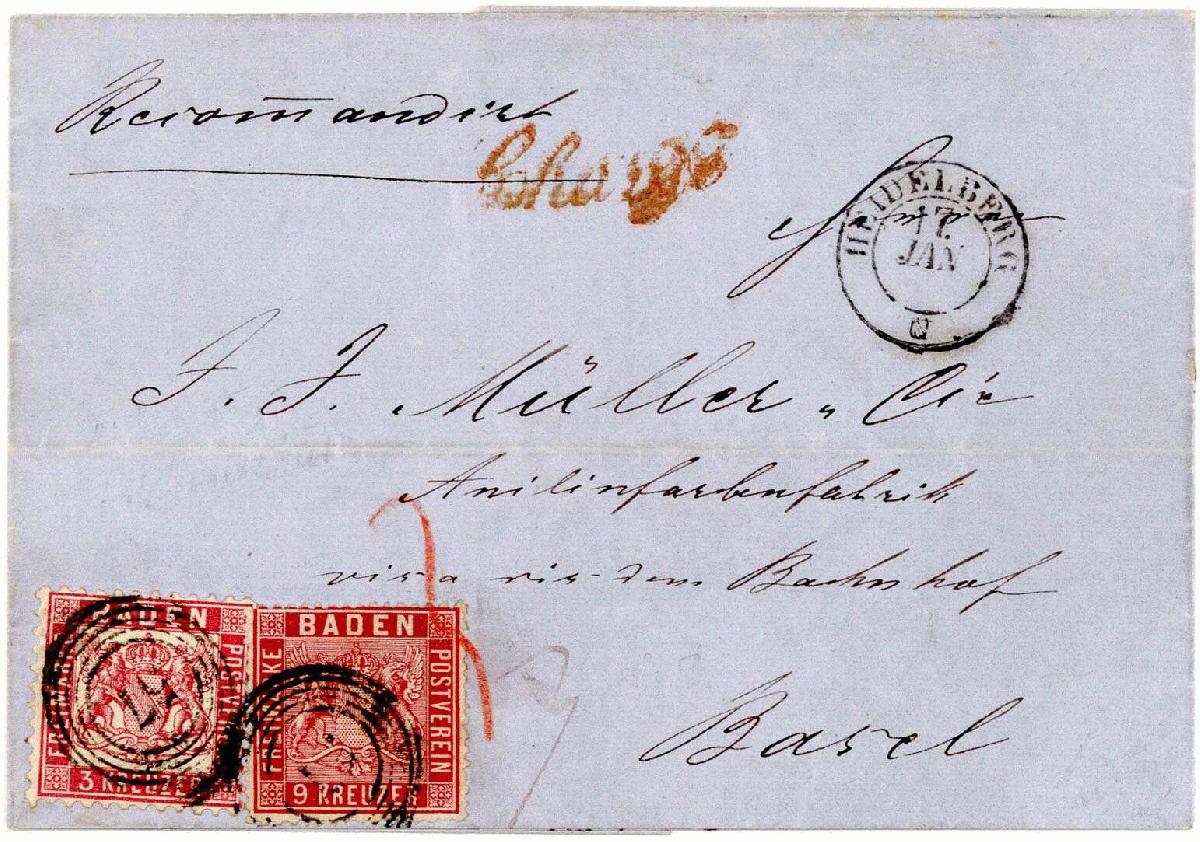 Recom̄andirt
Chargé
HEIDELBERG
17.
JAN
Herren
J. J. Müller & Cie
Anilinfarbenfabrik
vis a vis dem Bahnhof
Basel
BADEN
FREIMARKE
POSTVEREIN
3 KREUZER
BADEN
FREIMARKE
POSTVEREIN
9 KREUZER